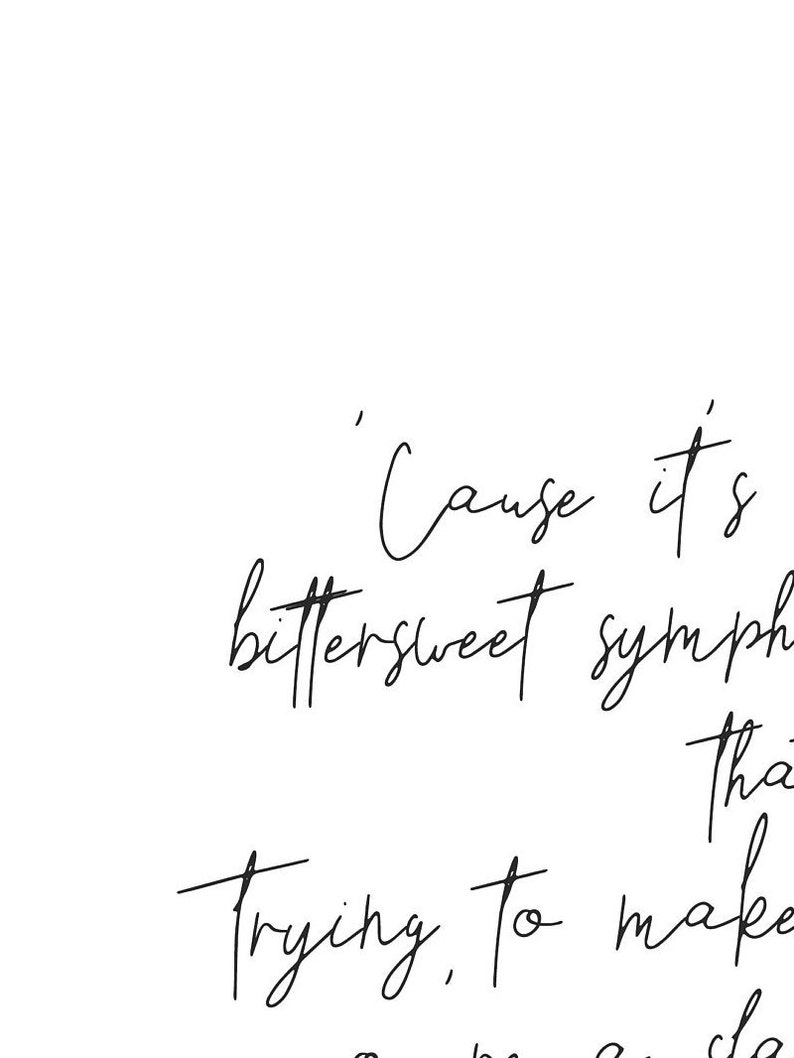 'Cause it's
bittersweet symph
tha
Trying, to make